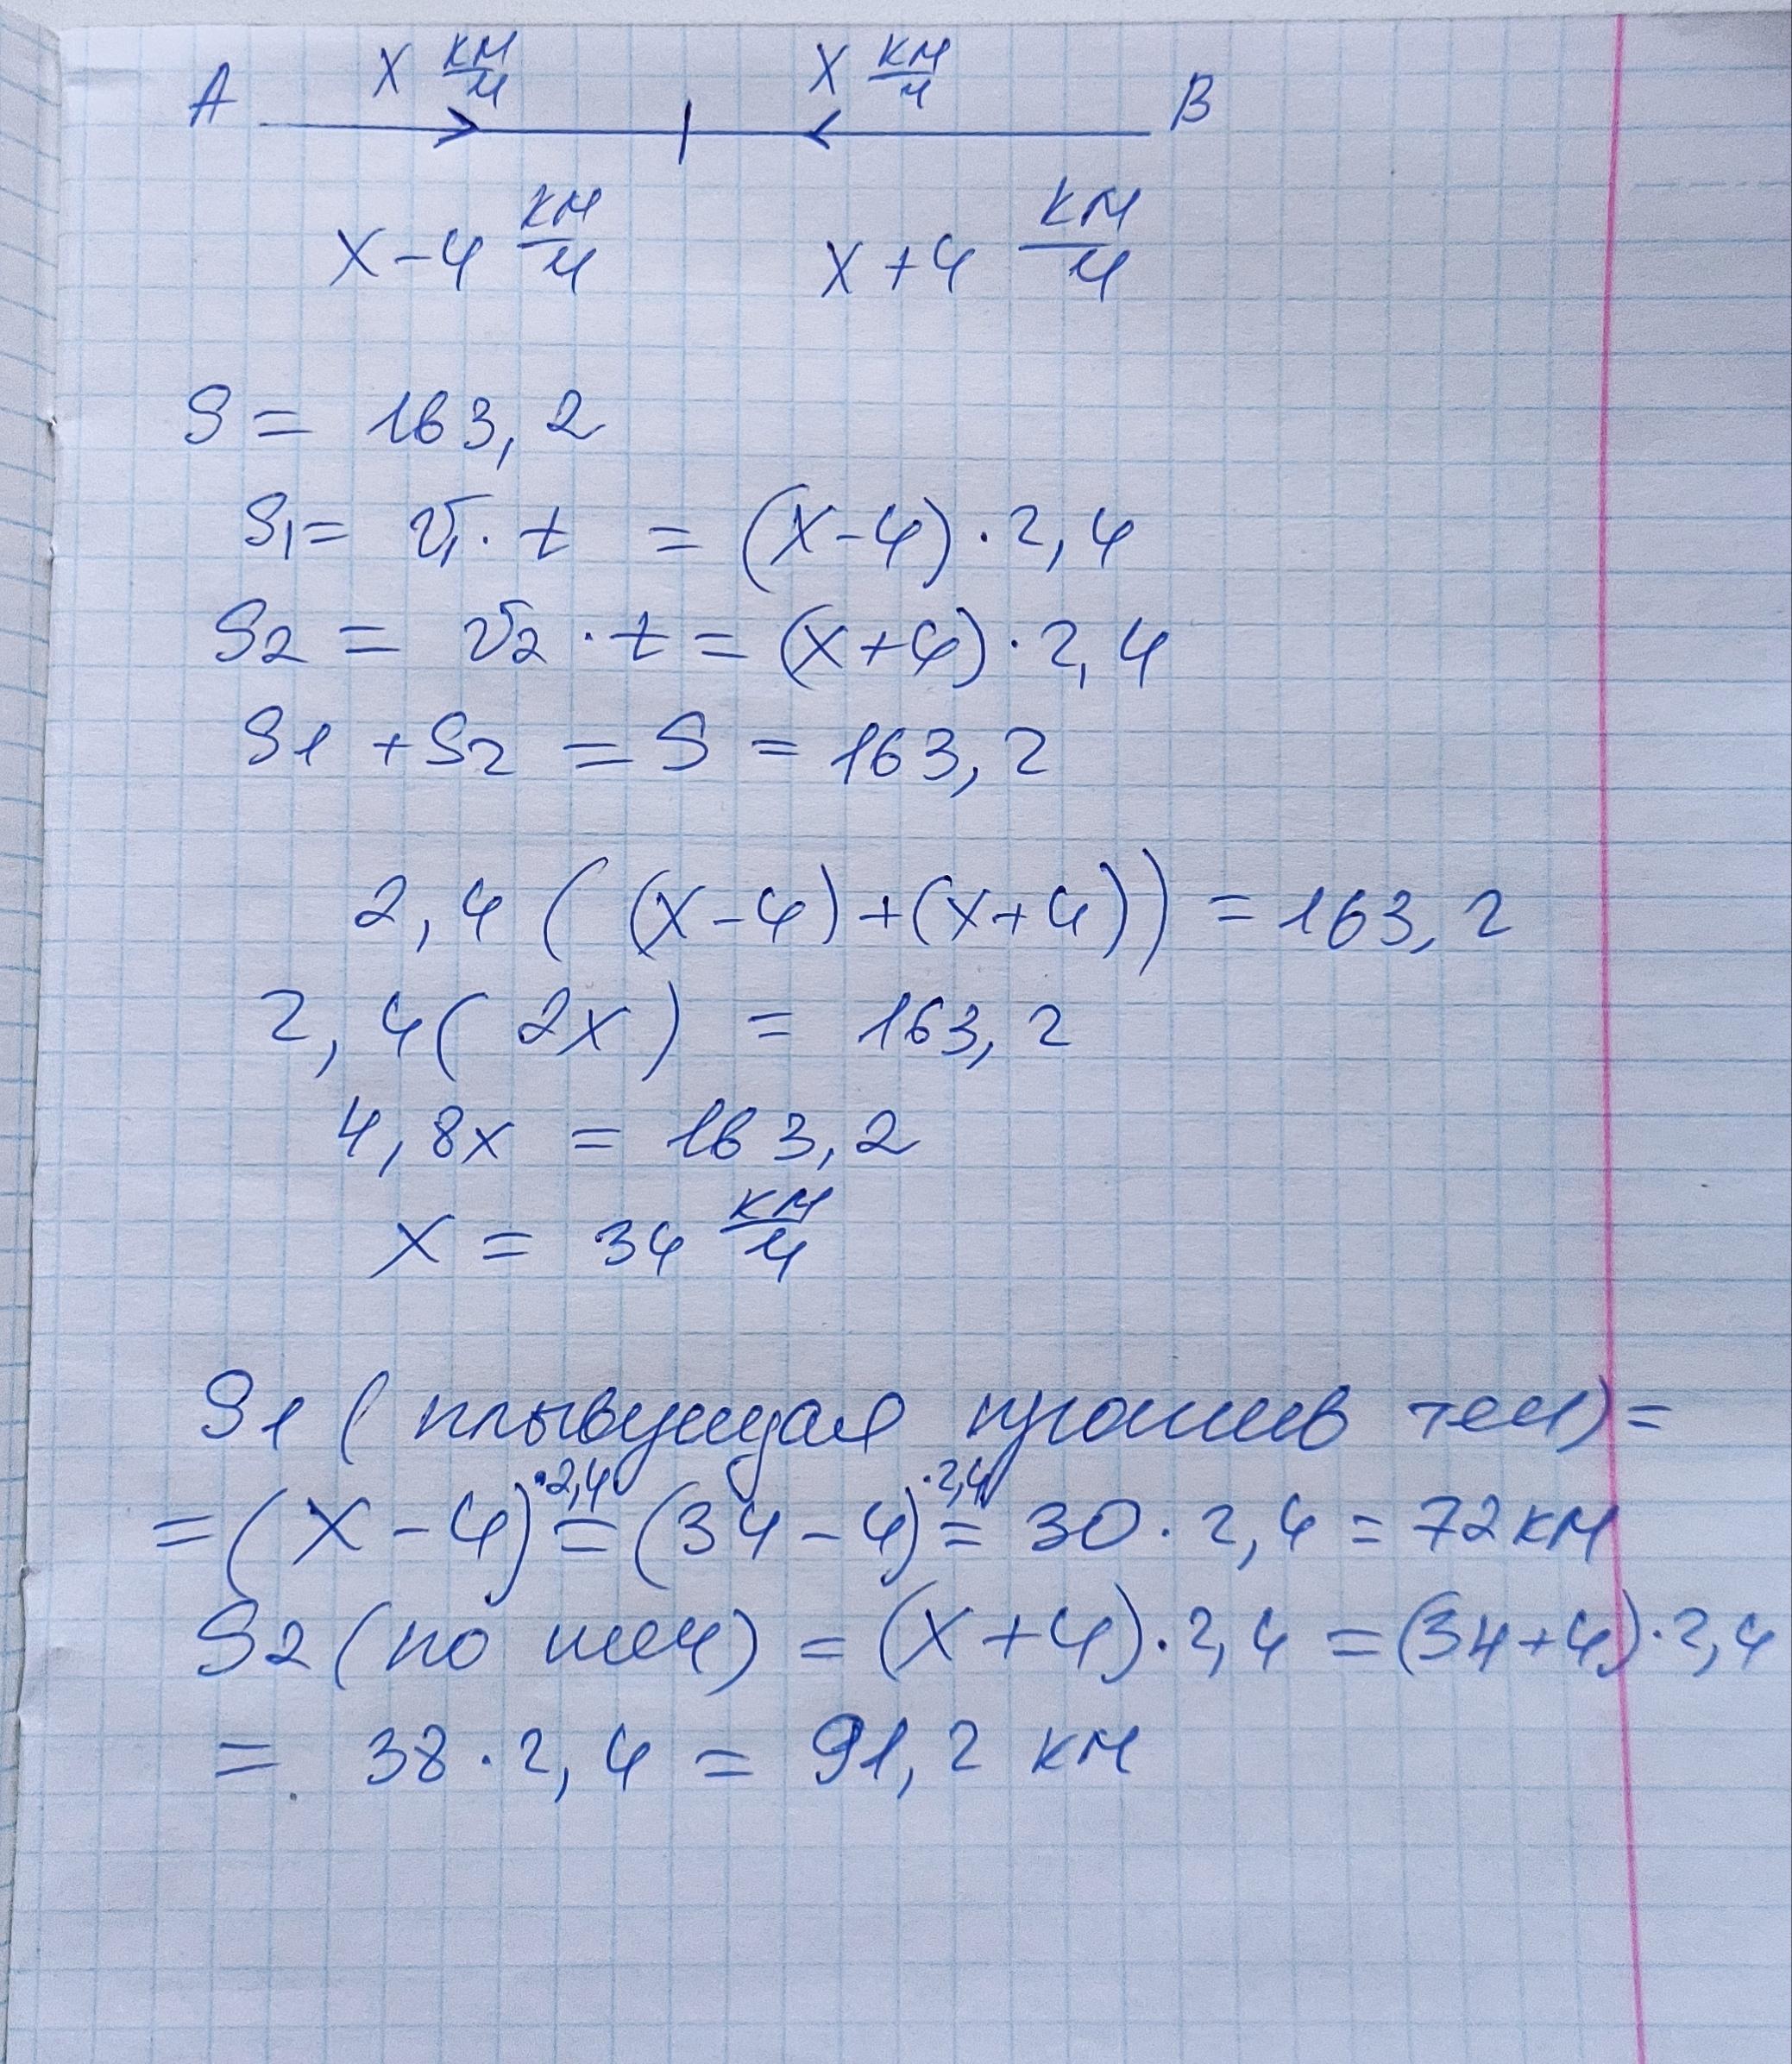 A x км/ч x км/ч B
x-4 км/ч x+4 км/ч
S= 163,2
S1= v1·t = (x-4)·2,4
S2 = v2·t = (x+4)·2,4
S1+S2 = S = 163,2
2,4((x-4)+(x+4)) = 163,2
2,4(2x) = 163,2
4,8x = 163,2
x = 34 км/ч
S1 (плывущая против теч) =
=(x-4)·2,4=(34-4)·2,4=30·2,4=72км
S2(по теч) = (x+4)·2,4 =(34+4)·2,4
= 38·2,4 = 91,2 км